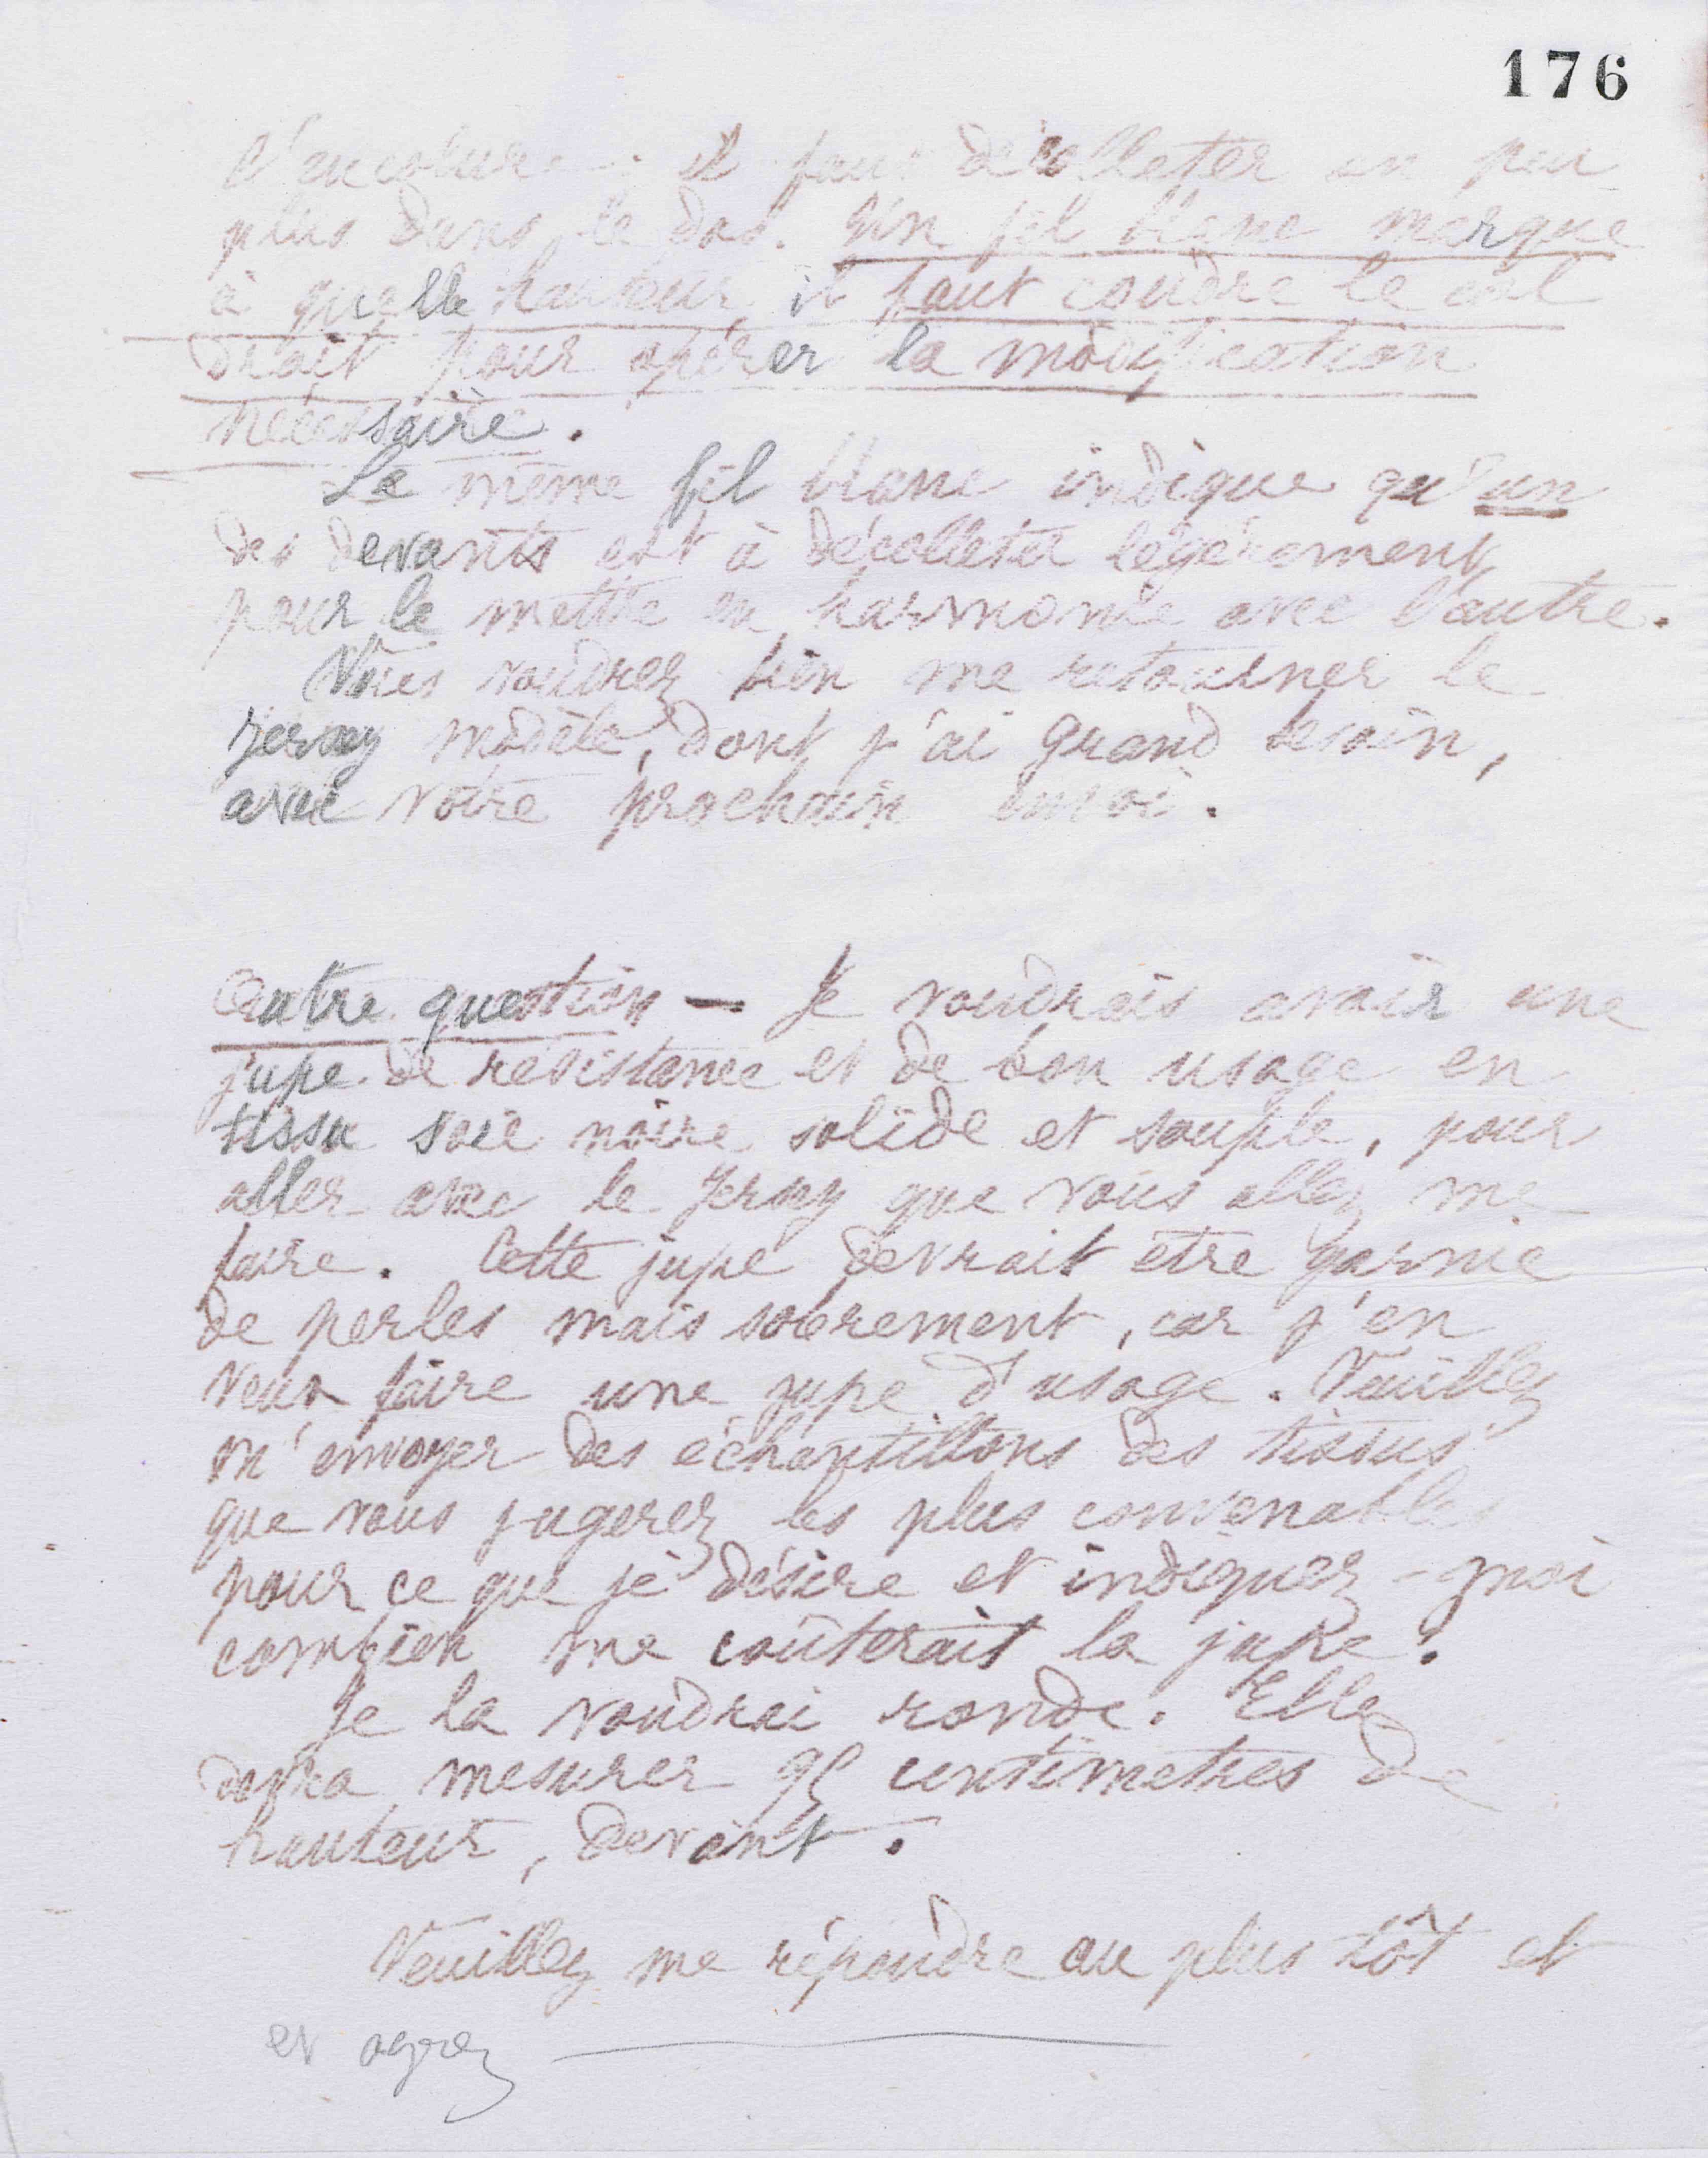 176
L'encolure : il faut décolleter un peu
plus dans le dos. Un fil blanc marque
à quelle hauteur il faut coudre le col
droit pour opérer la modification
nécessaire.
Le même fil blanc indique qu'un
des devants est à décolleter légèrement
pour le mettre en harmonie avec l'autre.
Vous voudrez bien me retourner le
jersey modèle, dont j'ai grand besoin,
avec votre prochain envoi.
Autre question — Je voudrais avoir une
jupe de résistance et de bon usage en
tissu soie noire solide et souple, pour
aller avec le jersey que vous allez me
faire. Cette jupe devrait être garnie
de perles mais sobrement, car j'en
veux faire une jupe d'usage. Veuillez
m'envoyer des échantillons des tissus
que vous jugerez les plus convenables
pour ce que je désire et indiquez-moi
combien me coûterait la jupe.
Je la voudrai ronde. Elle
devra mesurer 95 centimetres de
hauteur, devant.
Veuillez me répondre au plus tôt et
et agréez